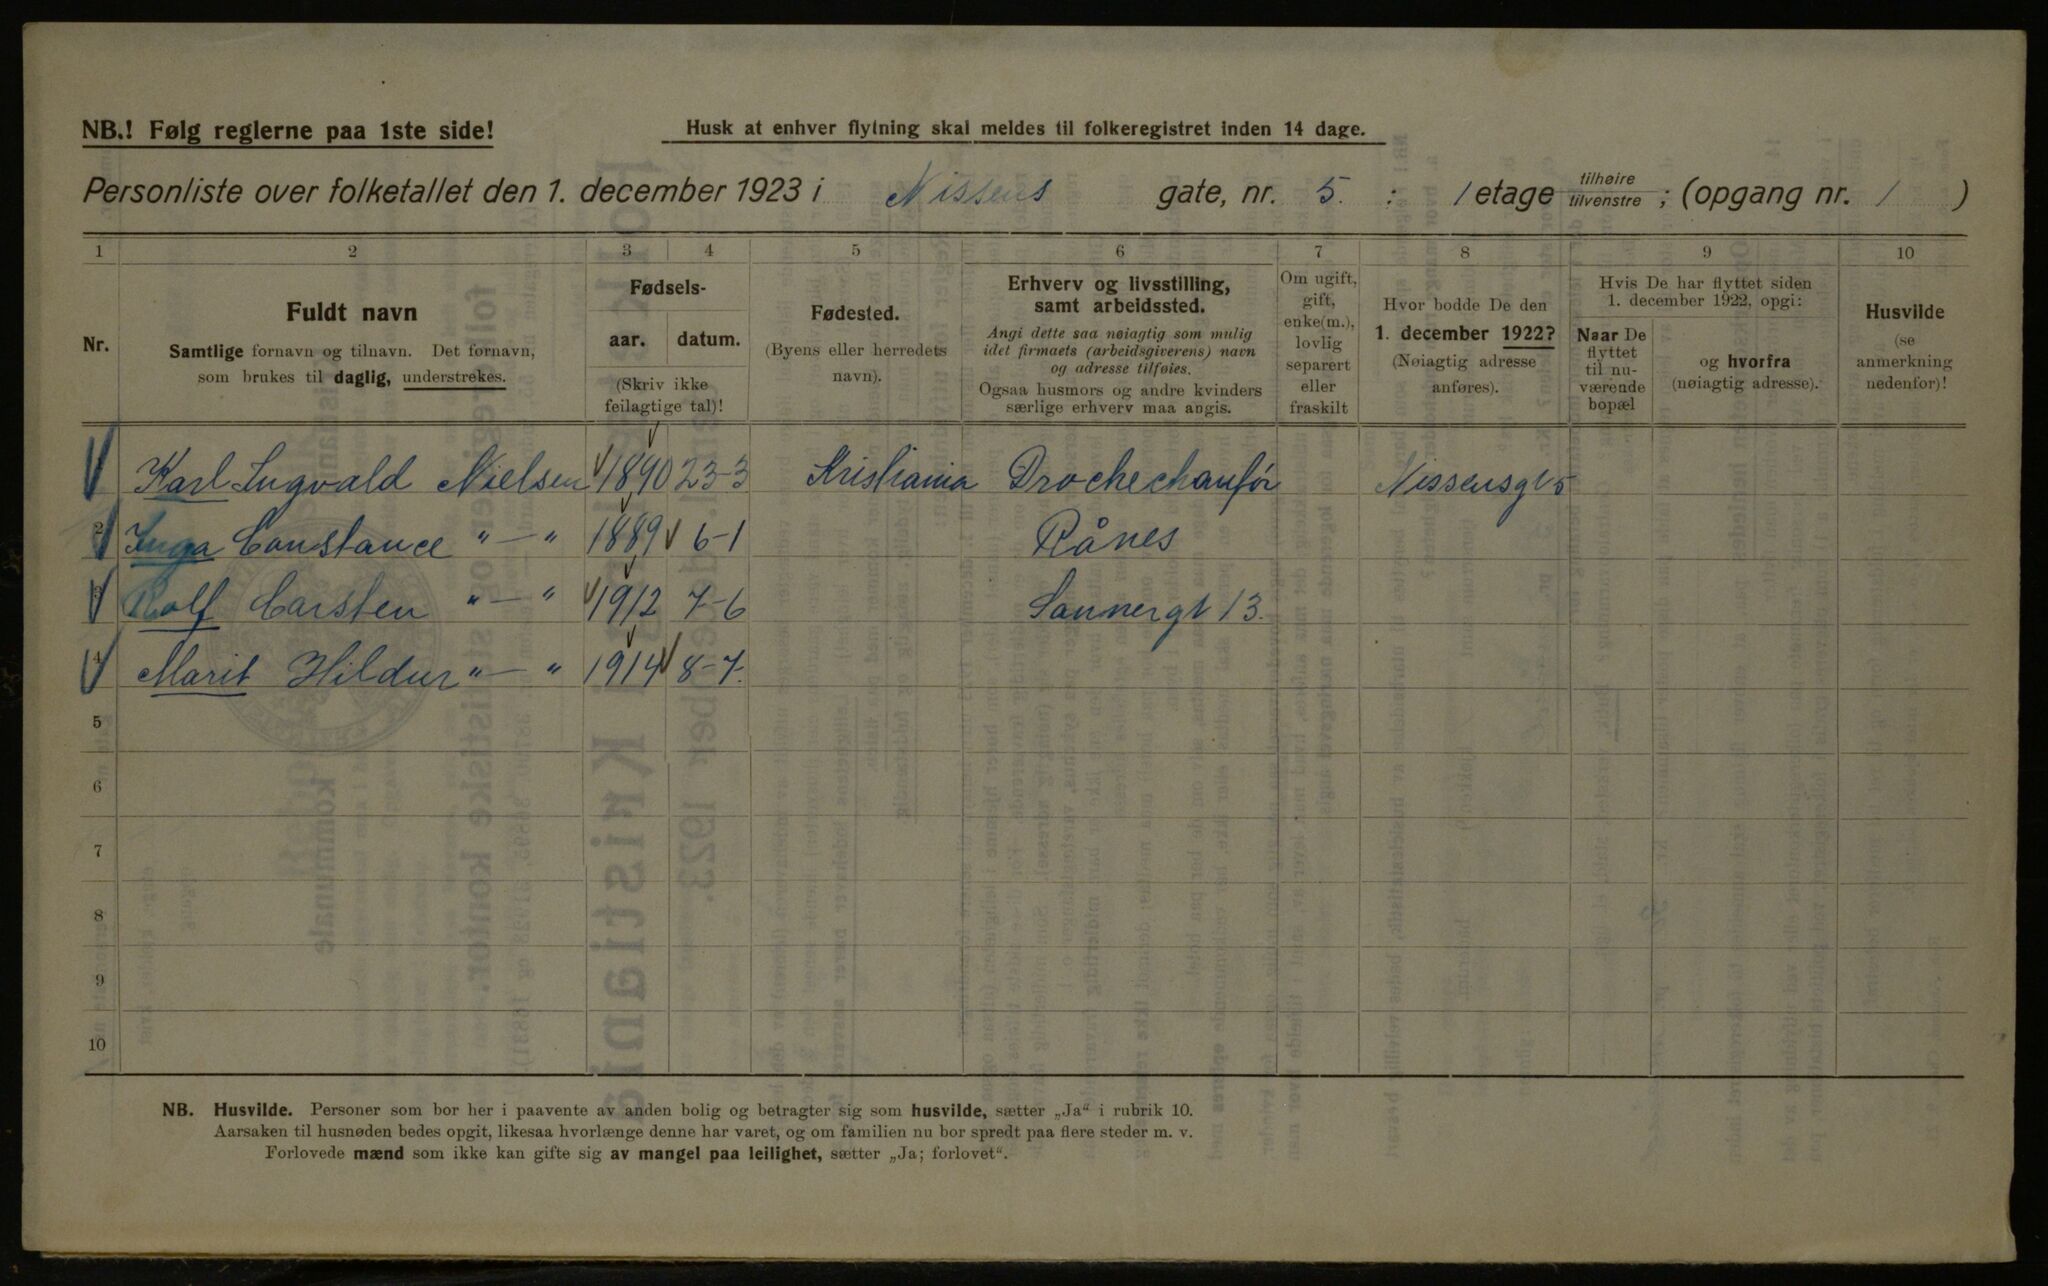 NB.! Følg reglerne paa 1ste side!
Husk at enhver flytning skal meldes til folkeregistret inden 14 dage.
Personliste over folketallet den 1. december 1923 i Nissens gate, nr. 5. : 1 etage tilhøire tilvenstre ; (opgang nr. 1 )
1 2 3 4 5 6 7 8 9 10
Nr.
Fuldt navn
Samtlige fornavn og tilnavn. Det fornavn,
som brukes til daglig, understrekes.
Fødsels-
aar. datum.
(Skriv ikke
feilagtige tal)!
Fødested.
(Byens eller herredets
navn).
Erhverv og livsstilling,
samt arbeidssted.
Angi dette saa nøiagtig som mulig
idet firmaets (arbeidsgiverens) navn
og adresse tilføies.
Ogsaa husmors og andre kvinders
særlige erhverv maa angis.
Om ugift,
gift,
enke(m.),
lovlig
separert
eller
fraskilt
Hvor bodde De den
1. december 1922?
(Nøiagtig adresse
anføres).
Hvis De har flyttet siden
1. december 1922, opgi:
Naar De
flyttet
til nu-
værende
bopæl
og hvorfra
(nøiagtig adresse).
Husvilde
(se
anmerkning
nedenfor)!
Karl Ingvald Nielsen 1890 23-3 Kristiania Drochechaufør Nissensgt 5
2 Inga Constance " — " 1889 6-1 Rånes
3 Rolf Carsten " — " 1912 7-6 Sannergt 13.
4 Marit Hildur " — " 1914 8-7.
5
6
7
8
9
10
NB. Husvilde. Personer som bor her i paavente av anden bolig og betragter sig som husvilde, sætter „Ja" i rubrik 10.
Aarsaken til husnøden bedes opgit, likesaa hvorlænge denne har varet, og om familien nu bor spredt paa flere steder m. v.
Forlovede mænd som ikke kan gifte sig av mangel paa leilighet, sætter „Ja; forlovet".